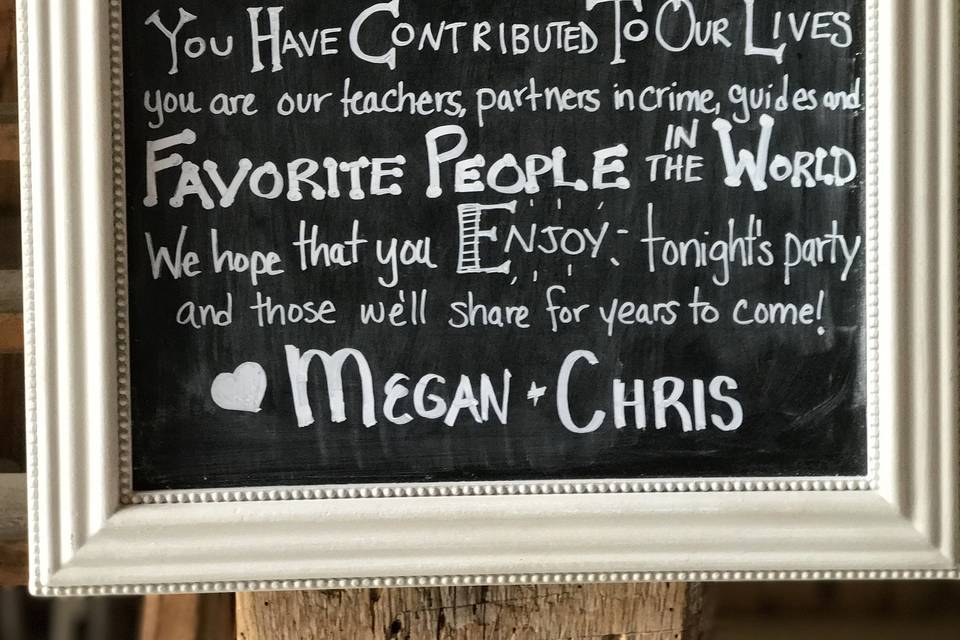 You Have Contributed To Our Lives
you are our teachers, partners in crime, guides and
FAVORITE PEOPLE IN THE WORLD
We hope that you ENJOY tonight's party
and those we'll share for years to come!
♥ MEGAN + CHRIS